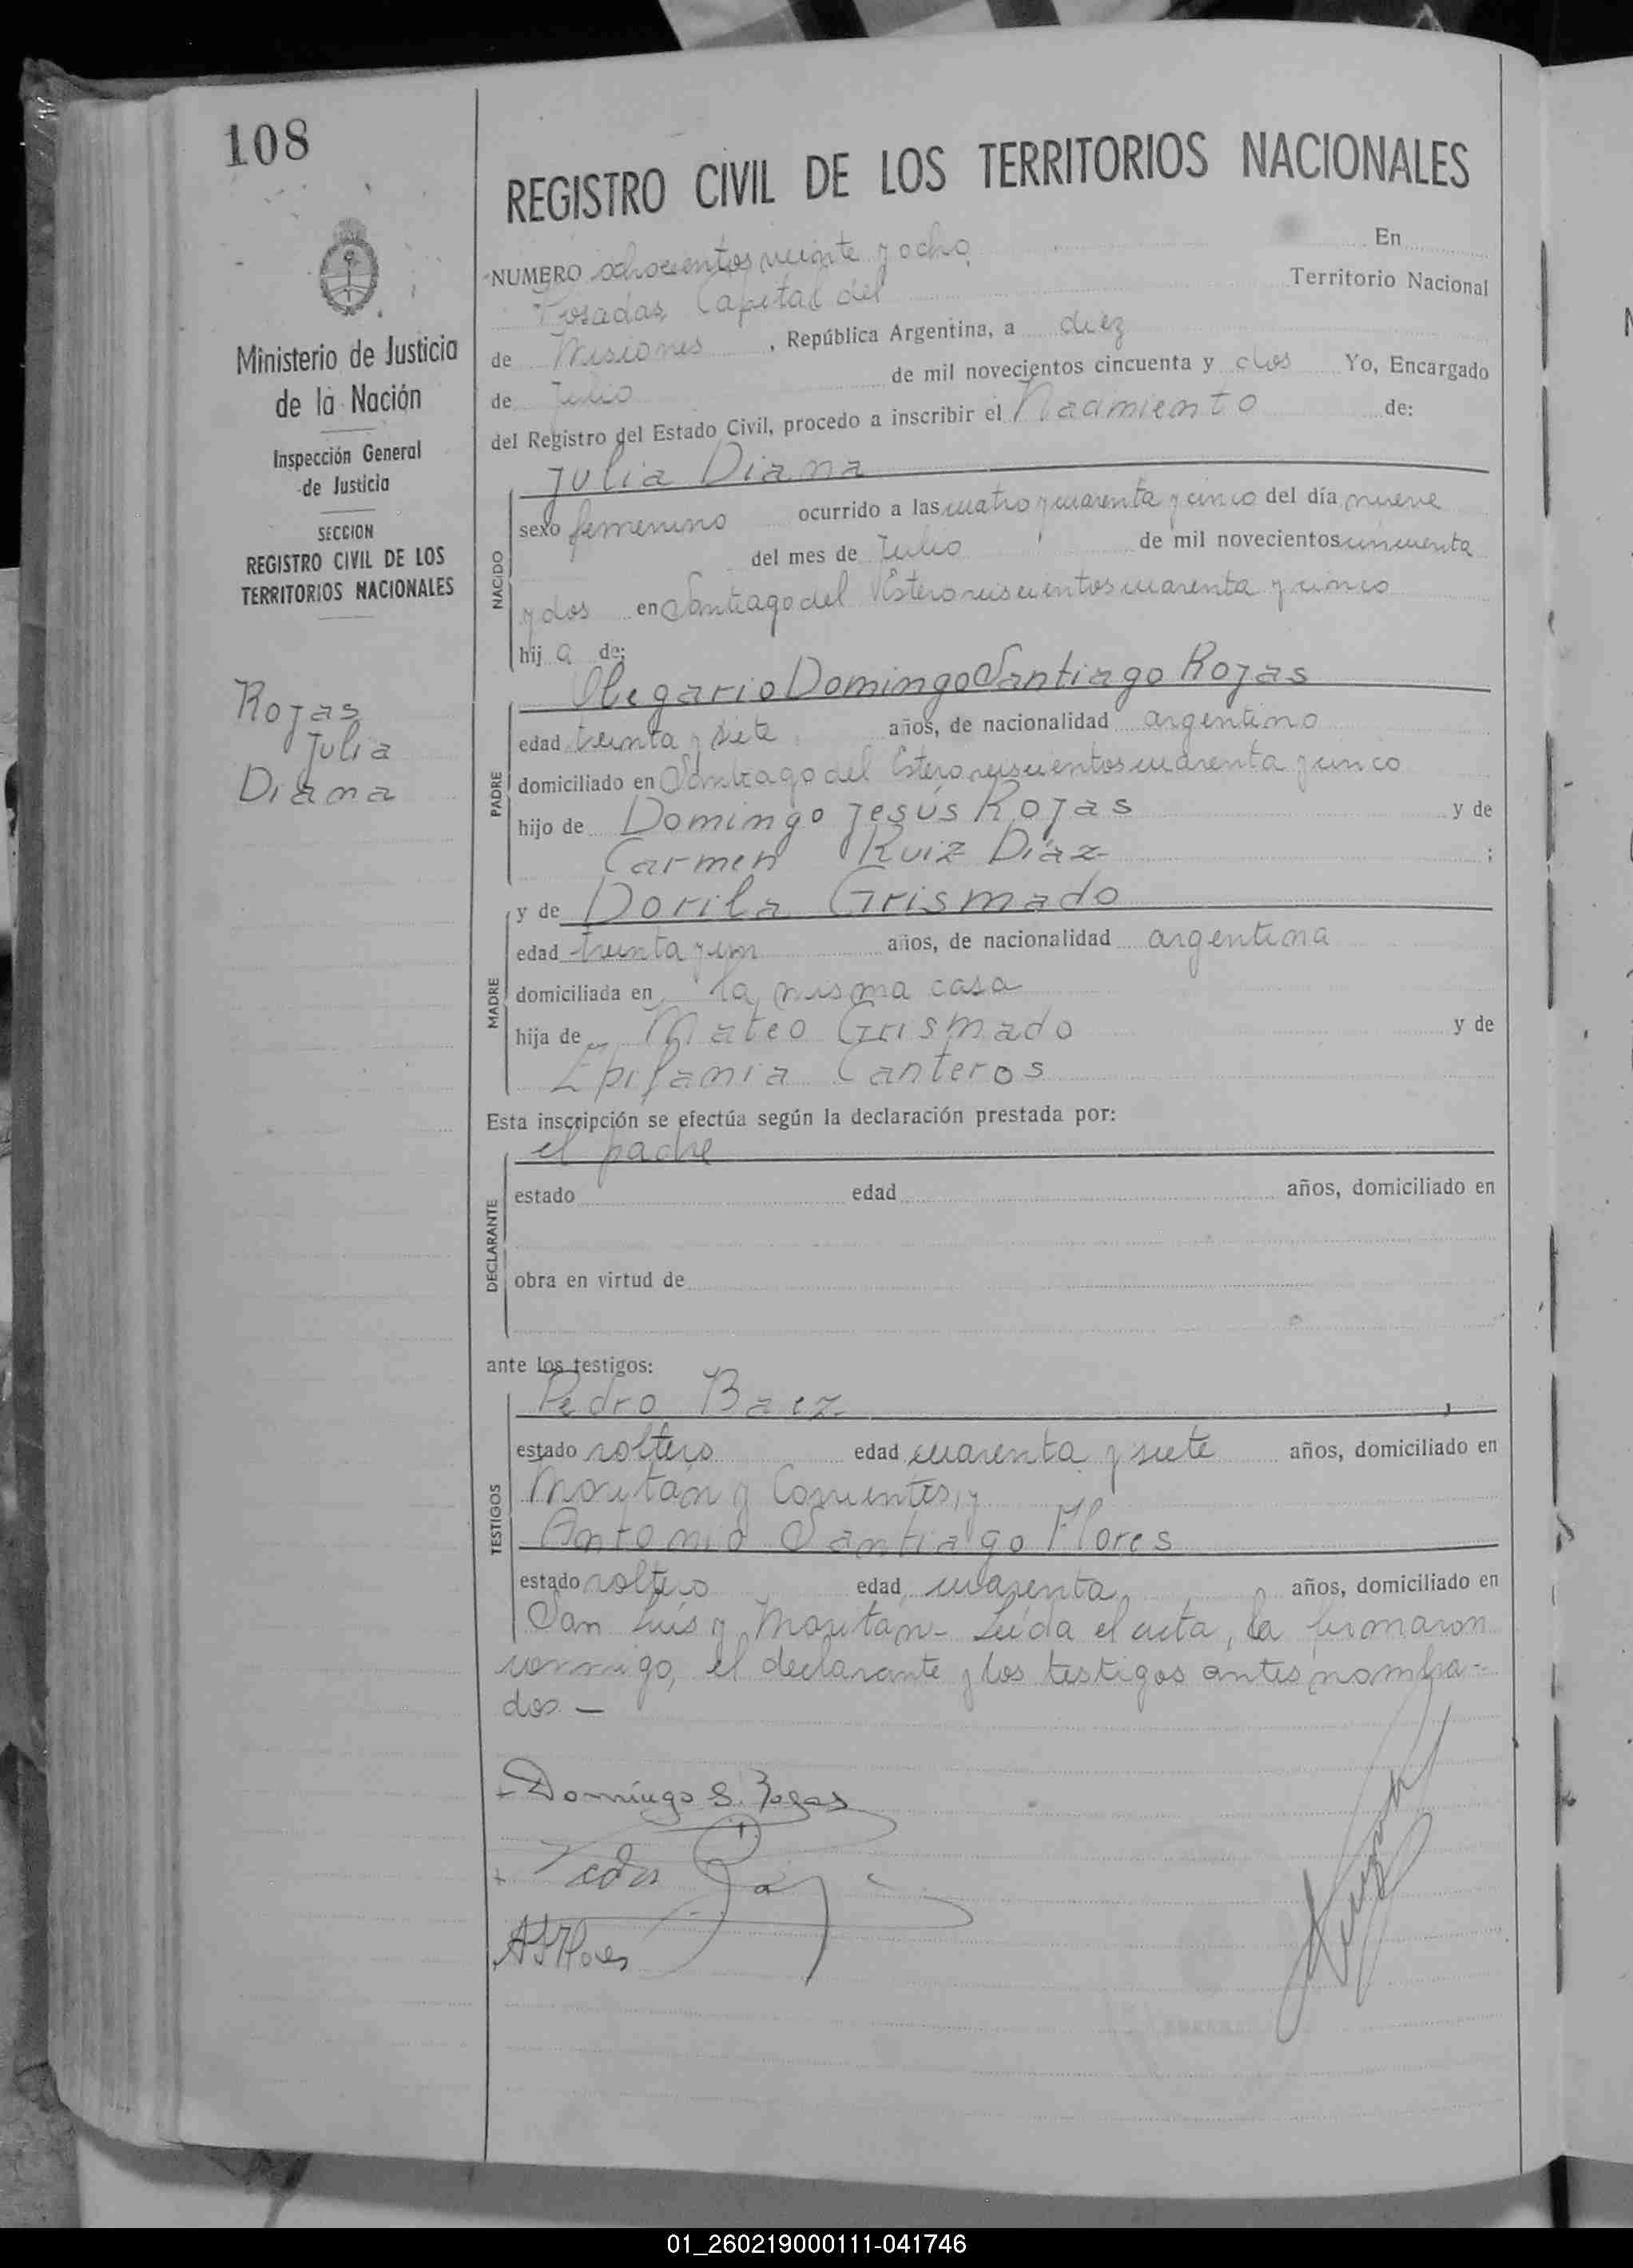 108
REGISTRO CIVIL DE LOS TERRITORIOS NACIONALES
Ministerio de Justicia
de la Nación
Inspección General
de Justicia
SECCION
REGISTRO CIVIL DE LOS
TERRITORIOS NACIONALES
Rojas
Julia
Diana
NUMERO ochocientos veinte y ocho En
Posadas Capital del Territorio Nacional
de Misiones, República Argentina, a diez
de Julio de mil novecientos cincuenta y dos Yo, Encargado
del Registro del Estado Civil, procedo a inscribir el Nacimiento de:
NACIDO
Julia Diana
sexo femenino ocurrido a las cuatro y cuarenta y cinco del día nueve
del mes de Julio de mil novecientos cincuenta
y dos en Santiago del Estero seiscientos cuarenta y cinco
hij a de:
PADRE
Olegario Domingo Santiago Rojas
edad treinta y siete años, de nacionalidad argentino
domiciliado en Santiago del Estero seiscientos cuarenta y cinco
hijo de Domingo Jesús Rojas y de
Carmen Ruiz Díaz ;
MADRE
y de Dorila Grismado
edad treinta y un años, de nacionalidad argentina
domiciliada en la misma casa
hija de Mateo Grismado y de
Epifania Canteros
Esta inscripción se efectúa según la declaración prestada por:
DECLARANTE
el padre
estado edad años, domiciliado en
obra en virtud de
ante los testigos:
TESTIGOS
Pedro Baez ,
estado soltero edad cuarenta y siete años, domiciliado en
y Corrientes, y
Antonio Santiago Flores
estado soltero edad cuarenta años, domiciliado en
San Luis y Leída el acta, la firmaron
conmigo, el declarante y los testigos antes nombra-
dos.—
Domingo S. Rojas
Pedro
A S Flores
01_260219000111-041746